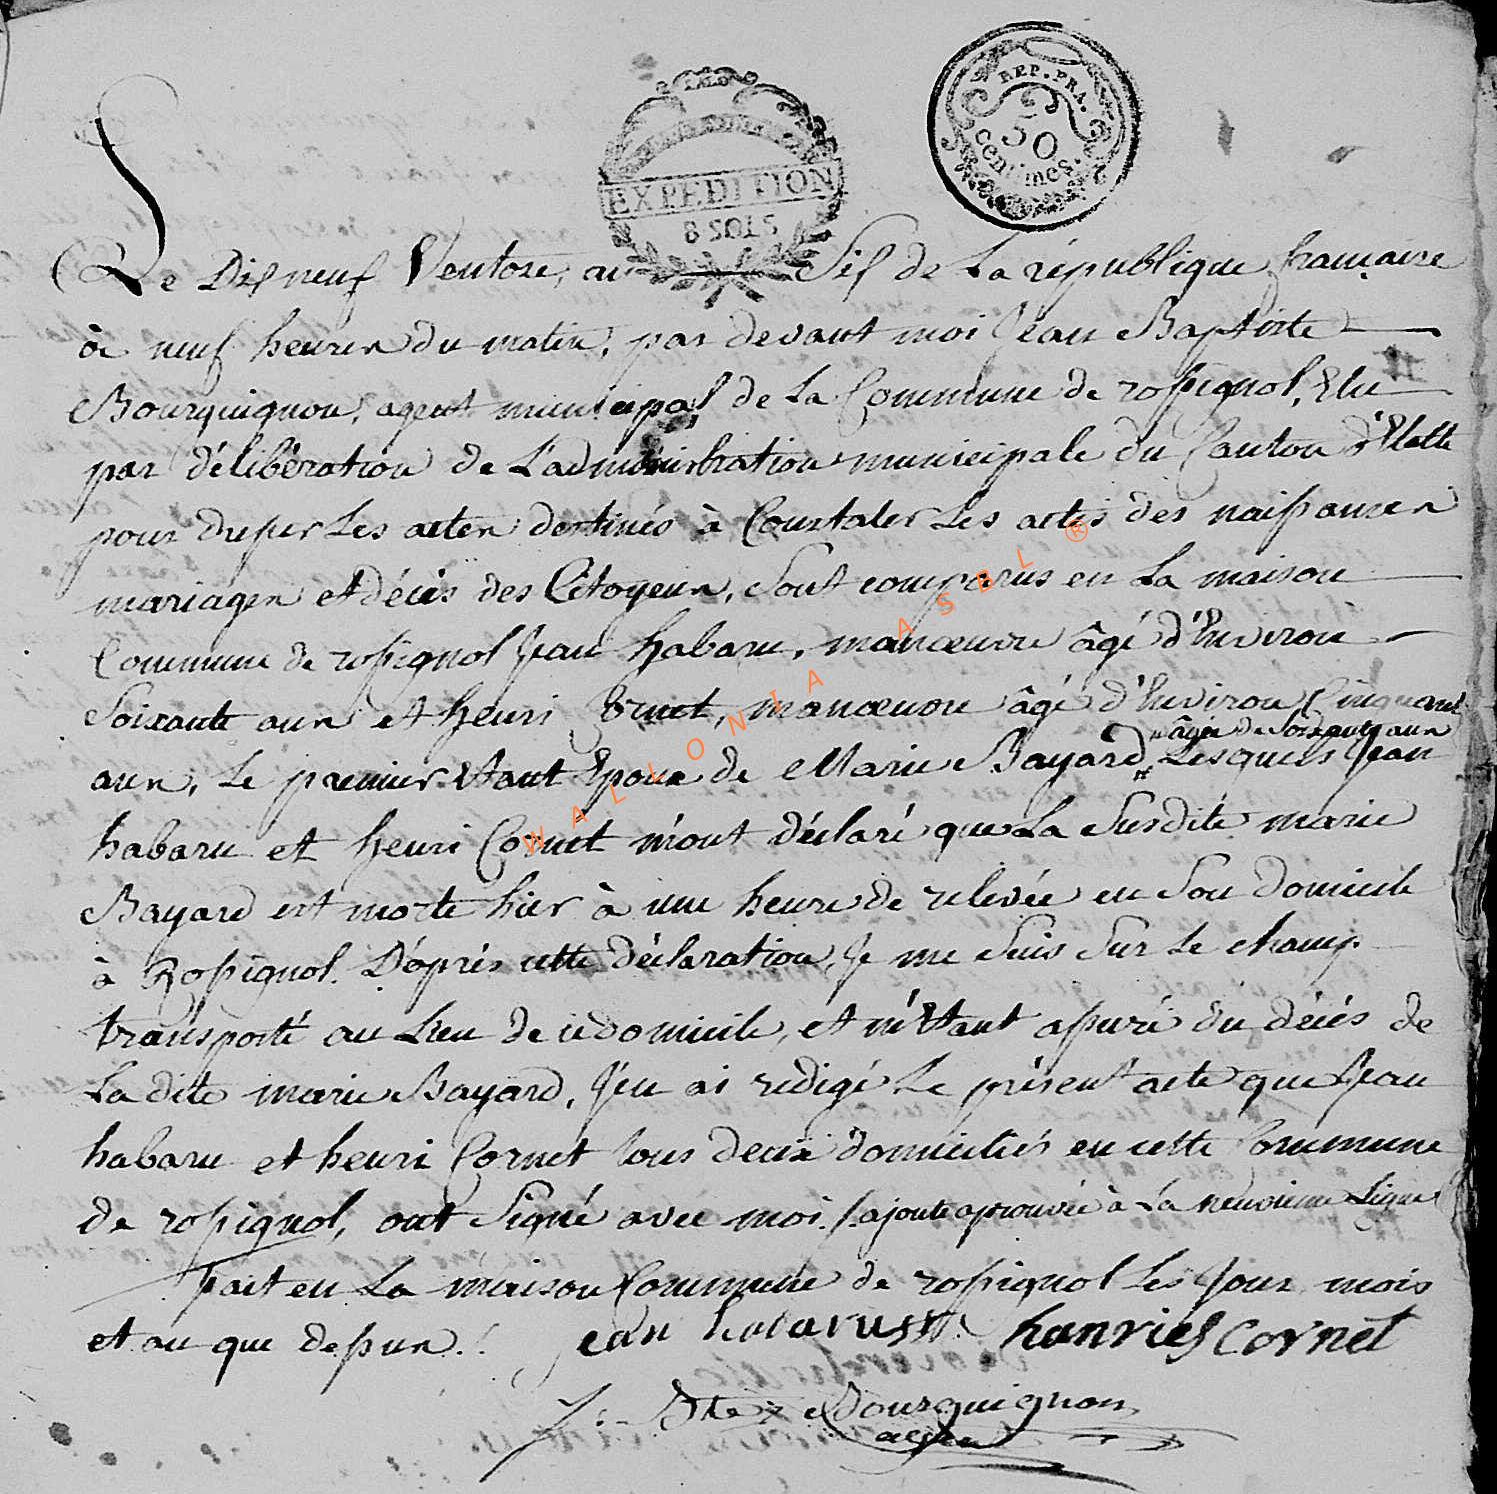 REP. FRA.
50
centimes.
EXPEDITION
8 SOLS
Le Dix neuf Ventose, an Six de La république française
à neuf heures du matin, par devant moi Jean Baptiste
Bourguignon, agent municipal de La Commune de rossignol, Elu
par délibération de L'administration municipale du Canton d'Etalle
pour dresser Les actes destinés à Constater Les actes des naissances
mariages et décès des Citoyens, Sont comparus en La maison
Commune de rossignol Jean habaru, manœuvre âgé d'Environ
Soixante ans et henri Cornet, manœuvre âgé d'Environ Cinquante
âgée de Soixante ans
ans, Le premier Etant Epoux de Marie Bayard, Lesquels Jean
habaru et henri Cornet m'ont déclaré que La Susdite marie
Bayard est morte hier à une heure de relevée en Son domicile
à Rossignol. D'après cette déclaration, Je me Suis Sur Le champ
transporté au Lieu de ce domicile, et m'Etant assuré du décès de
La dite marie Bayard, J'en ai redigé Le présent acte que Jean
habaru et henri Cornet tous deux domiciliés en cette Commune
de rossignol, ont Signé avec moi. ajoute aprouvée à La neuvieme Ligne
fait en La maison Commune de rossignol Les Jour mois
et an que dessus.
jean habaru hanries cornet
J: Bte Bourguignon
agent
WALLONIA ASBL ®